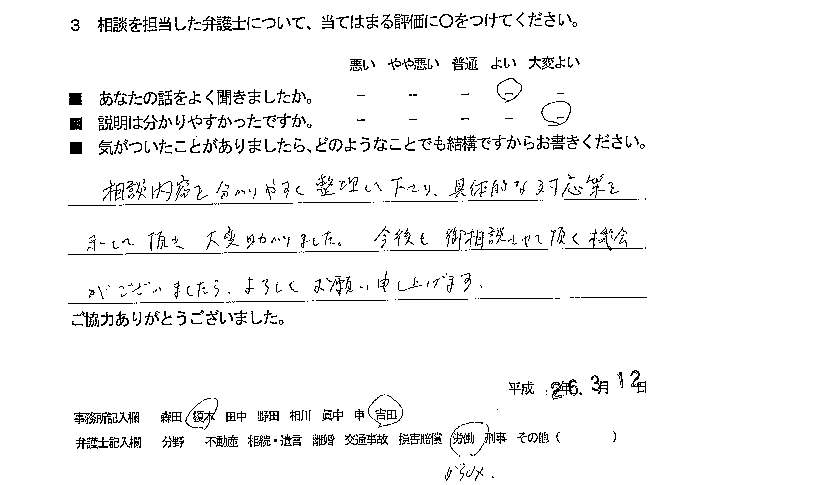 3 相談を担当した弁護士について、当てはまる評価に〇をつけてください。
悪い やや悪い 普通 よい 大変よい
■ あなたの話をよく聞きましたか。 － － － － －
■ 説明は分かりやすかったですか。 － － － － －
■ 気がついたことがありましたら、どのようなことでも結構ですからお書きください。
相談内容を分かりやすく整理して下さり、具体的な対応策を
示して頂き大変助かりました。今後も御相談させて頂く機会
がございましたら、よろしくお願い申し上げます。
ご協力ありがとうございました。
平成 26年 3月 12日
事務所記入欄 森田 榎本 田中 野田 相川 眞中 申 吉田
弁護士記入欄 分野 不動産 相続・遺言 離婚 交通事故 損害賠償 労働 刑事 その他（ ）